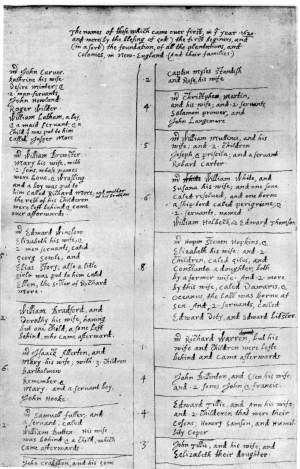 The names of those which came over first, in ye year 1620.
and were (by the blesing of God) the first beginers, and
(in a sort) the foundation, of all the plantations, and
Colonies, in New-England. (And their families)
mr John Carver.
Kathrine his wife.
Desire minter; &
2. man-servants
John Howland
Roger Wilder
William Latham, a boy.
& a maid servant. & a
child yt was put to him
called Jasper More
mr William Brewster
Mary his wife, with
2. sons, whose names
were Love, & Wrasling.
and a boy was put to
him called Richard More; and another
of his brothers
the rest of his children
were left behind & came
over afterwards.
mr Edward Winslow
Elizabeth his wife, &
2. men servants, called
Georg Sowle, and
Elias Story; also a litle
girle was put to him called
Ellen, the sister of Richard
More.
William Bradford, and
Dorothy his wife, having
but one child, a sone left
behind, who came afterward.
mr Isaack Allerton, and
Mary his wife; with 3. children
Bartholmew
Remember, &
Mary. and a servant boy,
John Hooke.
mr Samuell Fuller; and
a servant, caled
William Butten. His wife
was behind & a child, which
came afterwards.
John Crakston, and his sone
2
Captin Myles Standish
and Rose, his wife
4
mr Christopher Martin,
and his wife; and 2. servants,
Salamon prower, and
John Langemore
5
mr William Mullines, and his
wife; and 2. children
Joseph, & priscila; and a servant
Robart Carter.
6
mr William White, and
Susana his wife; and one sone
caled resolved, and one borne
a ship-bord caled perigriene; &
2. servants, named
William Holbeck, & Edward Thomson
8
mr Steven Hopkins, &
Elizabeth his wife; and 2.
children, caled Giles, and
Constanta a doughter, both
by a former wife. And 2. more
by this wife, caled Damaris, &
Oceanus, the last was borne at
sea. And 2. servants, called
Edward Doty, and Edward Litster.
1
mr Richard Warren, but his
wife and children were lefte
behind and came afterwards
4
John Billinton, and Elen his wife;
and 2. sones John, & Francis.
4
Edward Tillie, and Ann his wife;
and 2. children that were their
cossens; Henery Samson, and Humillity
Coper
3
John Tillie, and his wife; and
Eelizabeth their doughter